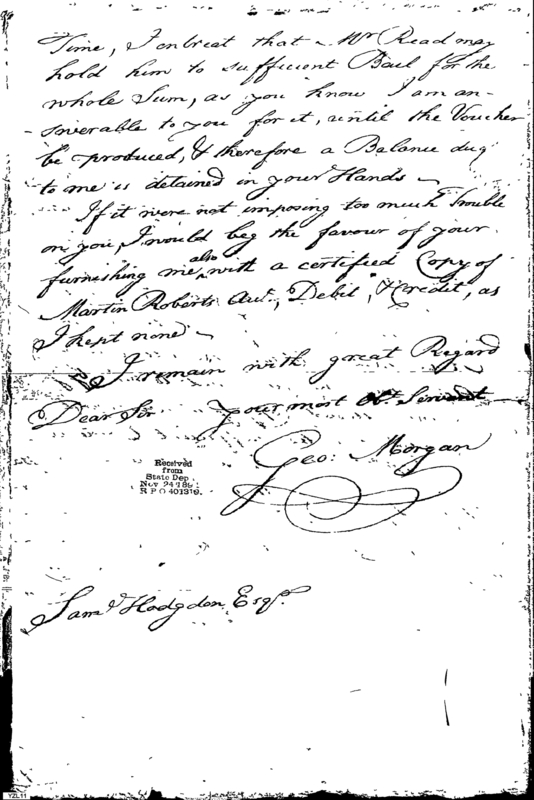 Time, I entreat that Mr Read may
hold him to sufficient Bail for the
whole Sum, as you know I am an-
-swerable to you for it, until the Voucher
be produced, & therefore a Balance due
to me is detained in your Hands —
If it were not imposing too much Trouble
on you, I would beg the favour of your
furnishing me also with a certified Copy of
Martin Roberts Acct, Debit, & Credit, as
I kept none —
I remain with great Regard
Dear Sir your most Obt. Servant
Geo: Morgan
Received
from
State Dep
Nov 24 189
R P O 401319.
Saml Hodgdon Esqr.
YZL11